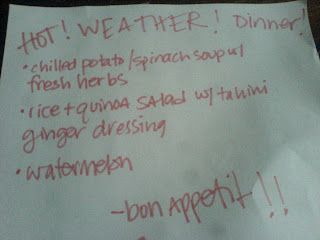 HOT! WEATHER! Dinner!
• chilled potato/spinach soup w/
fresh herbs
• rice + quinoa salad w/ tahini
ginger dressing
• watermelon
- bon appetit!!